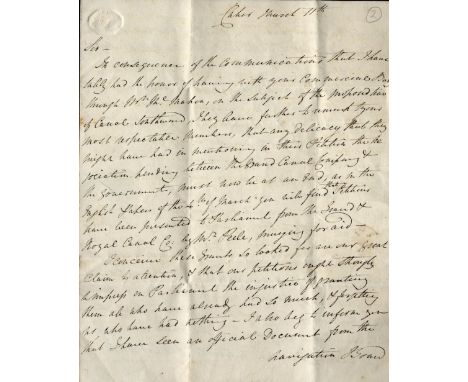 Caher March 11th
2
Sir—
In consequence of the Communications that I have
lately had the honor of having with your Commercial
through Mr. McMahon, on the subject of the
of Canal Southward, I beg leave further to remark to your
most respectable Members, that any delicacy that they
might have had in mentioning in their Petition the ne
gociation pending between the Grand Canal Company &
the Government, must now be at an End, as in the
English papers of the of March you will find that Petitions
have been presented to Parliament from the Grand &
Royal Canal Co. by Mr. Peele, praying for aid—
I conceive these Grants so looked for are our great
Claim to attention, & that our petitions ought strongly
to impress on Parliament the injustice of granting
them all who have already had so much, & forgetting
us who have had nothing— I also beg to inform you
that I have seen an official Document from the
Navigation Board